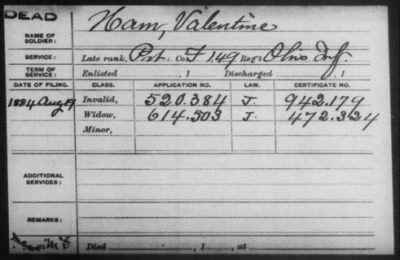 DEAD
NAME OF SOLDIER: Ham, Valentine
SERVICE: Late rank, Pvt. Co. F 149 Reg't Ohio Inf.
TERM OF SERVICE: Enlisted , 1 Discharged , 1
DATE OF FILING. CLASS. APPLICATION NO. LAW. CERTIFICATE NO.
1884 Aug 19 Invalid, 520.384 J. 942.179
Widow, 614.503 J. 472.324
Minor,
ADDITIONAL SERVICES:
REMARKS:
Died , 1 , at